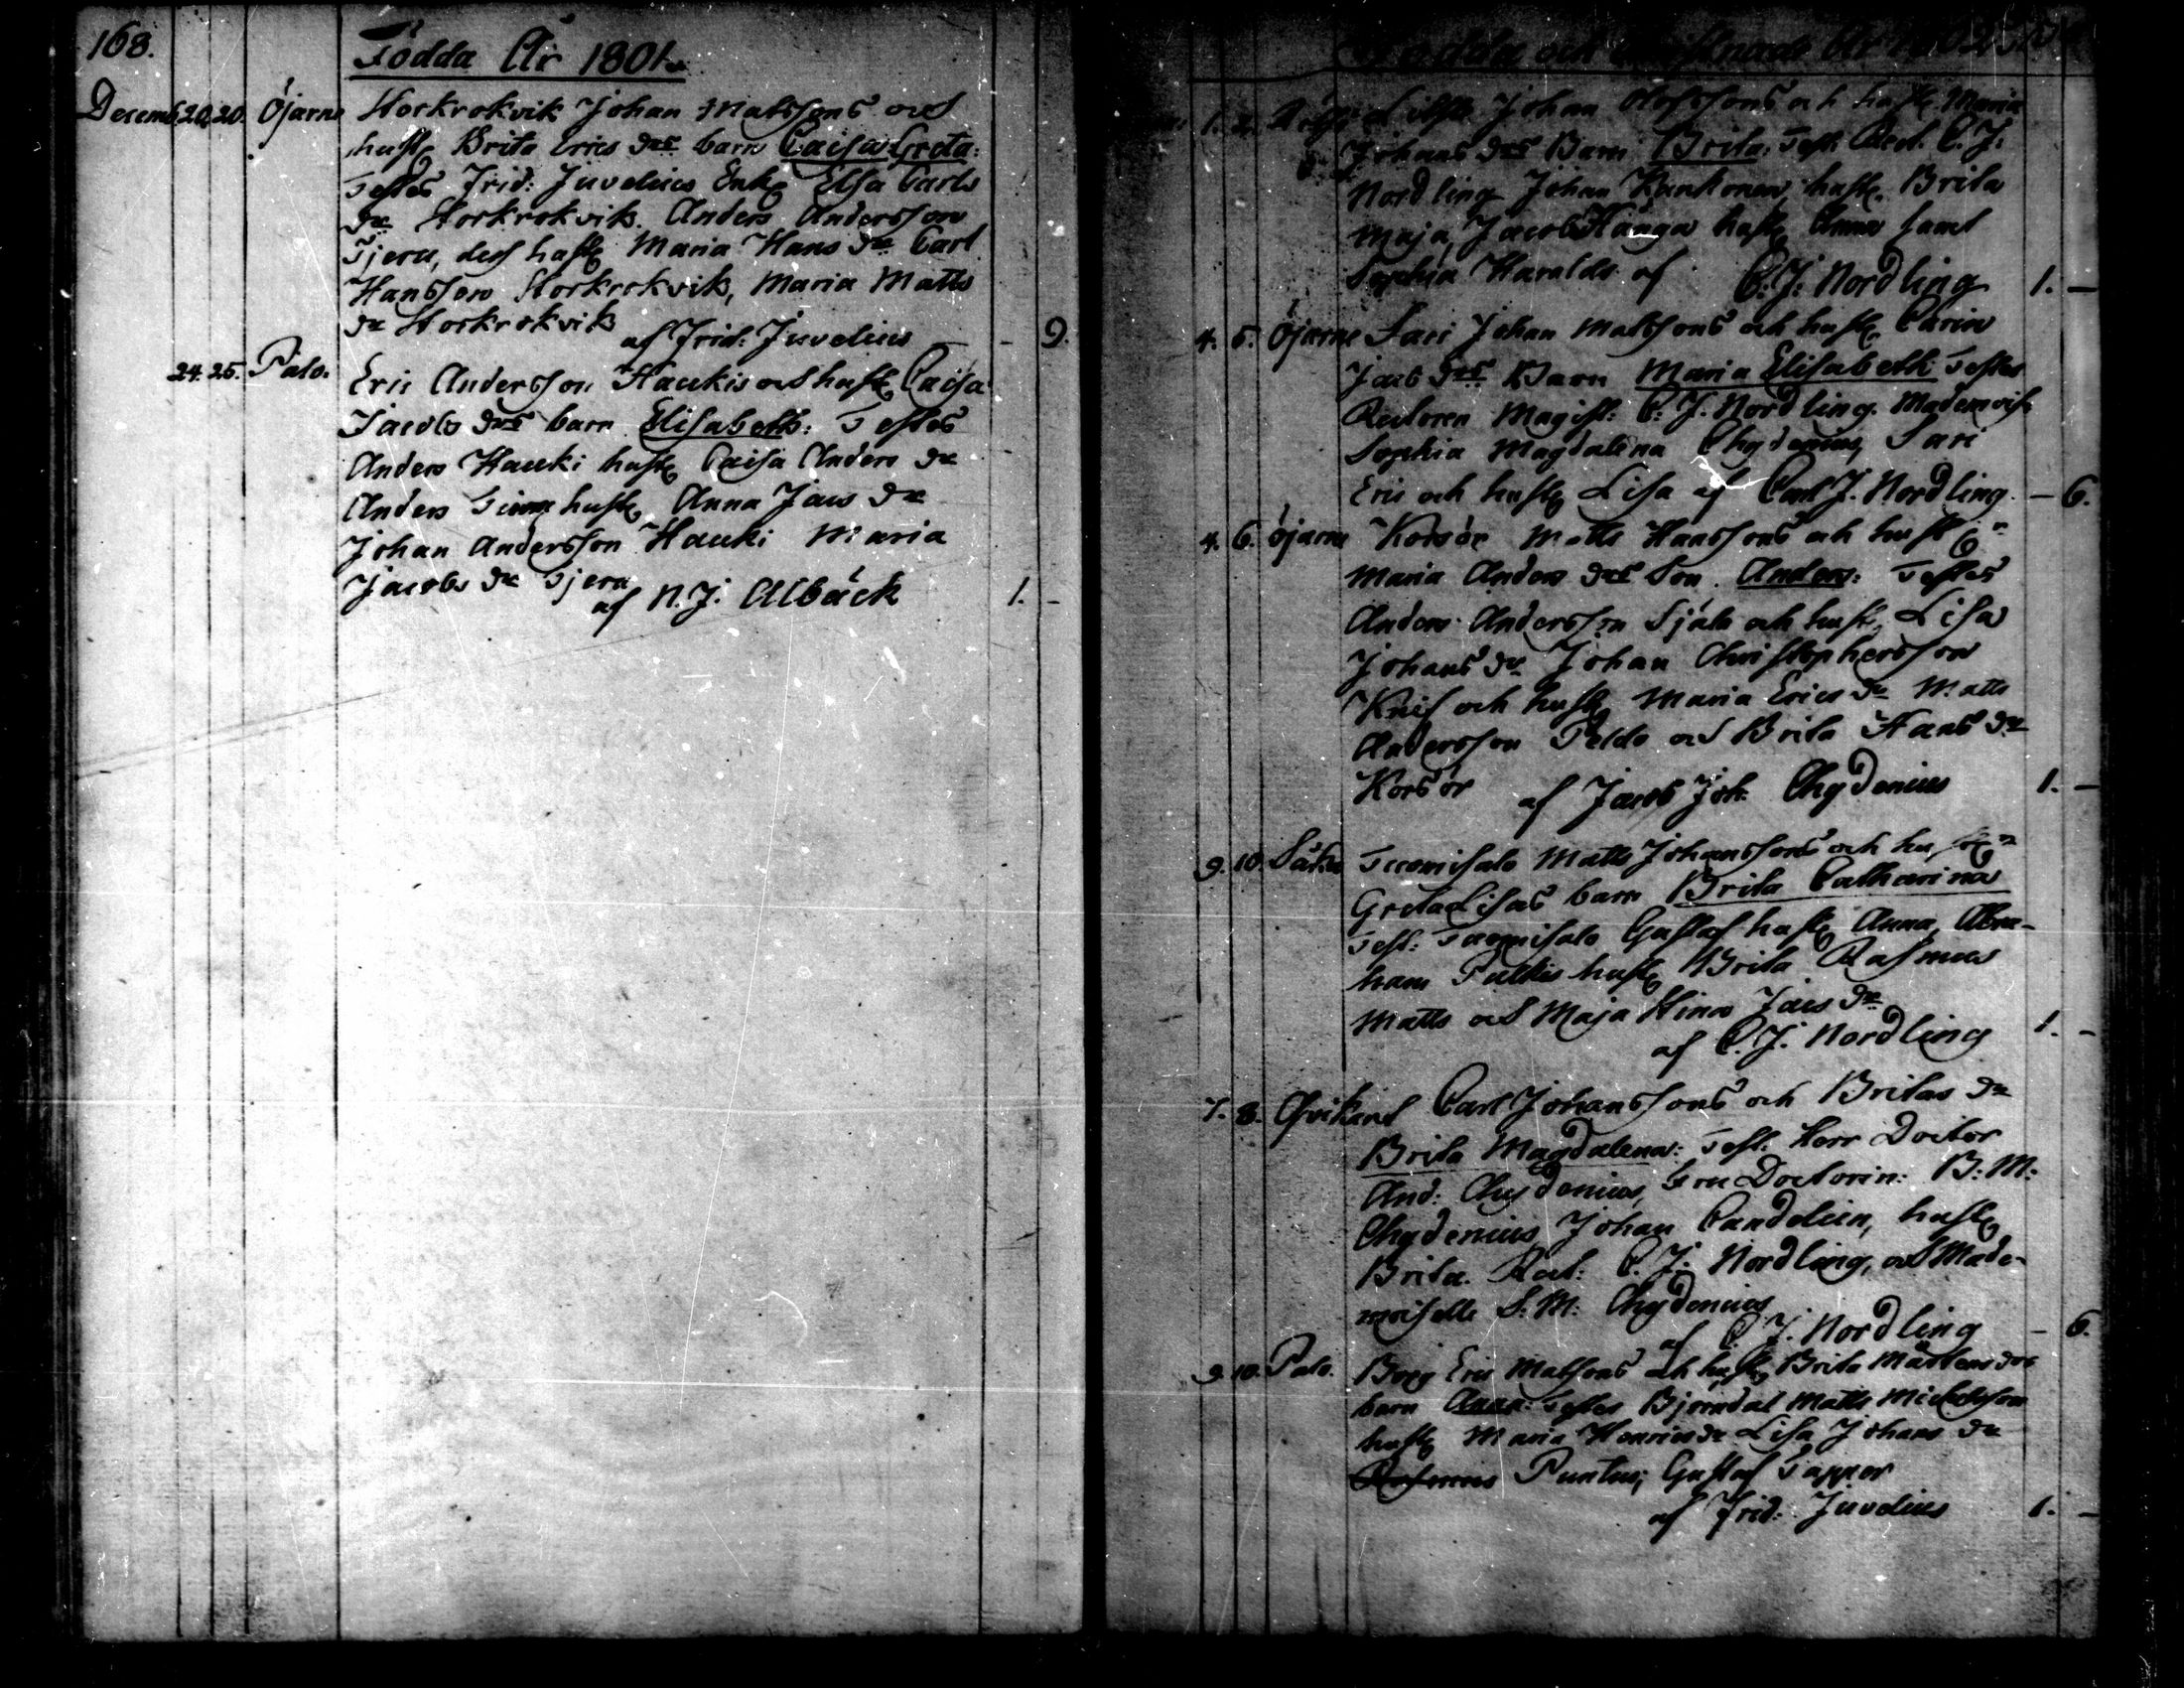 168.
Födda År 1801.
Decemb. 20. 20. Öjarne Storkrokvik Johan Matssons och
hustr Brita Erics drs barn Caisa Greta:
Testes Frid: Juvelius Enk Elsa Carls
dr Storkrokvik Anders Andersson
Tjeru, dess hustr Maria Hans dr Carl
Hansson Storkrokvik, Maria Matts
dr Storkrokvik af Frid: Juvelius - 9.
24. 25. Palo. Eric Andersson Haukis och hustr Caisa
Jacobs drs barn Elisabeth: Testes
Anders Hauki hustr Caisa Anders dr
Anders hustr Anna Jacs dr
Johan Andersson Hauki Maria
Jacobs dr Tjeru
af N. J. Albäck 1. -
Födda och År 1802
1. 2. Johan Olofssons och hustr Maria
Johans drs Barn Brita: Test. Rect. C. J.
Nordling Johan Kankonen, hustr Brita
Maja, Jacob Kånga hustr Anna samt
Sophia Haralds af C. J. Nordling 1. -
4. 5. Öjarne Sari Johan Matssons och hustr Carin
Jacs drs Barn Maria Elisabeth Testes
Rectoren Magist: C: J. Nordling. Mademois
Sophia Magdalena Chydenius, Sari
Eric och hustr Lisa af Carl J. Nordling. - 6.
4. 6. Öjarne Korsör Matts Hanssons och hustr
Maria Anders drs Son. Anders: Testes
Anders Andersson Sjålo och hustr Lisa
Johans dr Johan Christophersson
Knif och hustr Maria Erics dr Matts
Andersson Peldo och Brita Hans dr
Korsör af Jacob Joh. Chydenius 1. -
9. 10. Såka Tuomisalo Matts Johanssons och hustr
Greta Lisas barn Brita Catharina
Test: Tuomisalo Gustaf hustr Anna, Abra-
ham Pulkis hustr Brita Rasmus
Matts och Maja Hino Jacs dr
af C. J. Nordling 1. -
7. 8. Carl Johanssons och Britas dr
Brita Magdalena: Test. Herr Doctor
And: Chydenius, Fru Doctorin: B: M:
Chydenius Johan Candelin, hustr
Brita. Rect: C. J. Nordling, och Made-
moiselle S: M: Chydenius
af C. J. Nordling - 6.
9. 10. Palo. Eric Matsons och hustr Brita Mårtens drs
barn Anna: Testes Björndal Matts Mickelsson
hustr Maria Henrics dr Lisa Johans dr
Rasmus Puntus, Gustaf Tapper
af Frid: Juvelius 1. -